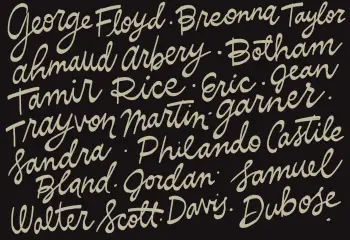 George Floyd · Breonna Taylor
Ahmaud Arbery · Botham
Tamir Rice · Eric · Jean
Trayvon Martin · Garner ·
Sandra · Philando Castile
Bland · Jordan · Samuel
Walter Scott · Davis · Dubose ·